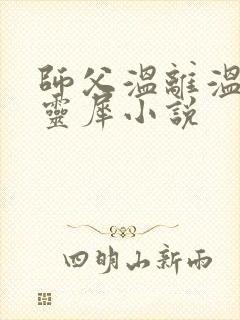 師父溫離溫
靈犀小說
四明山新雨